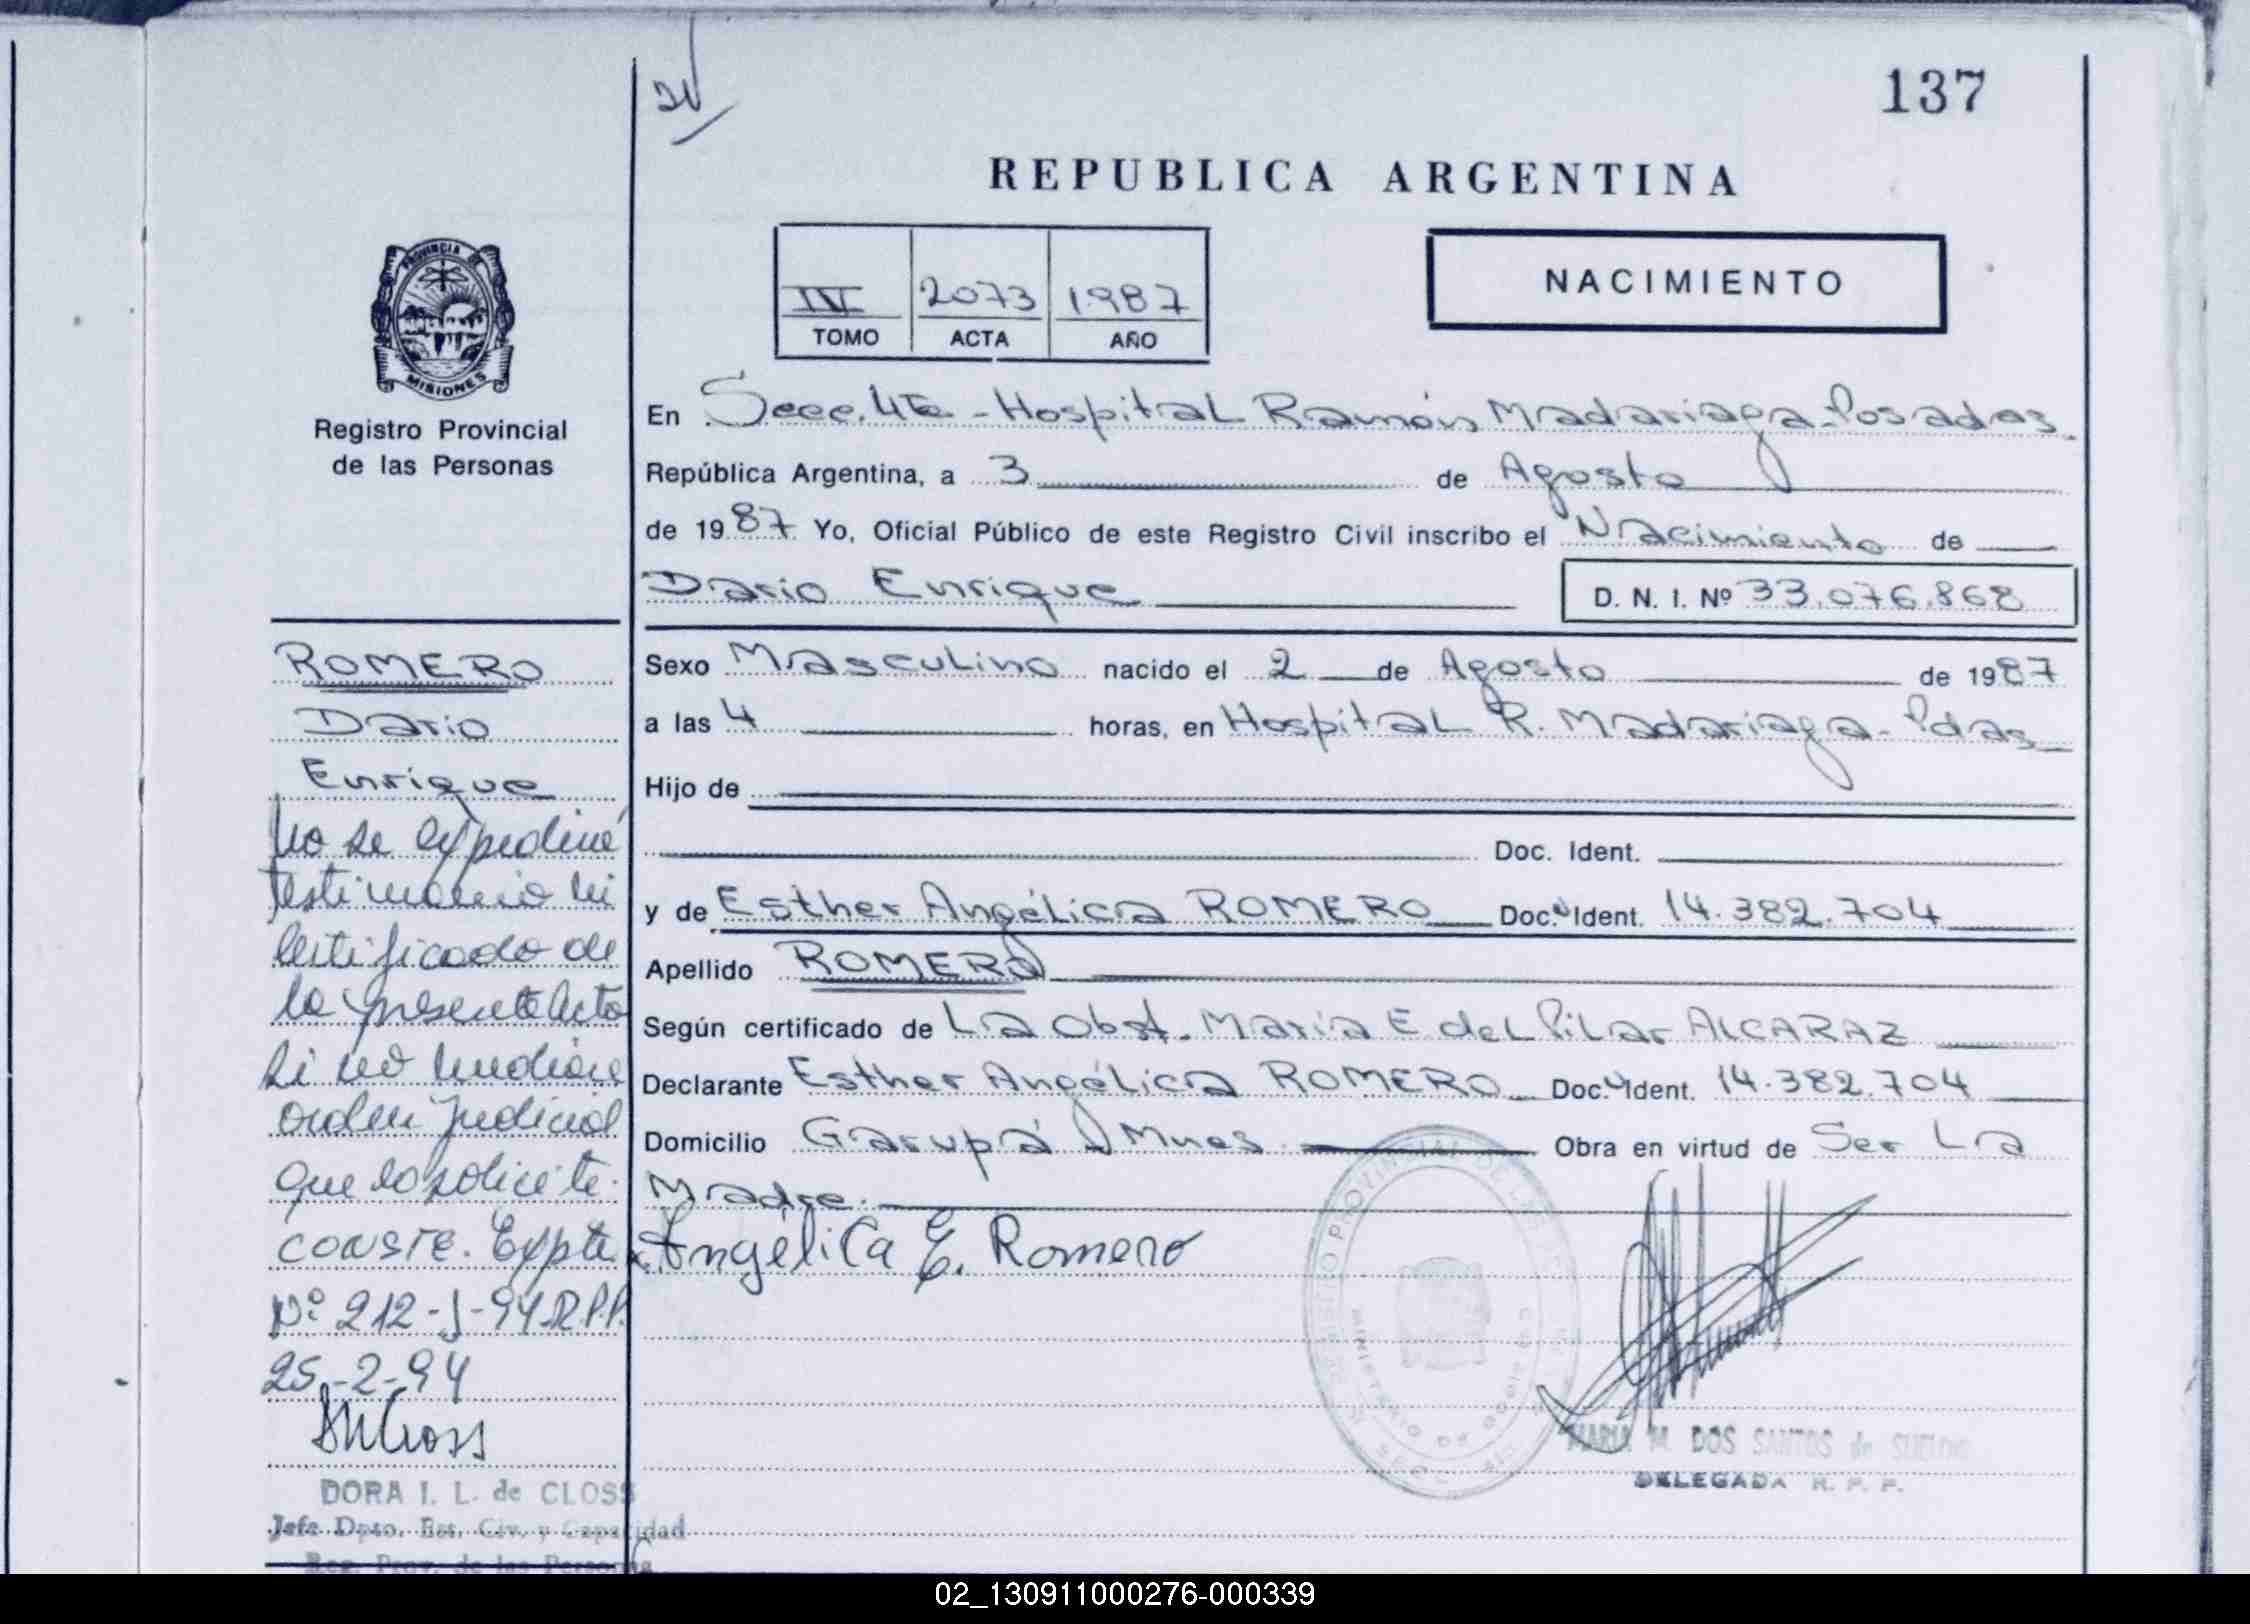 137
REPUBLICA ARGENTINA
PROVINCIA DE
MISIONES
Registro Provincial
de las Personas
IV 2073 1987
TOMO ACTA AÑO
NACIMIENTO
En Secc. 4ta - Hospital Ramón Madariaga - Posadas
República Argentina, a 3 de Agosto
de 1987 Yo, Oficial Público de este Registro Civil inscribo el Nacimiento de
Dario Enrique D. N. I. Nº 33.076.868
Sexo Masculino nacido el 2 de Agosto de 1987
a las 4 horas, en Hospital R. Madariaga - Pdas
Hijo de
Doc. Ident.
y de Esther Angélica ROMERO Doc. Ident. 14.382.704
Apellido ROMERO
Según certificado de La Obst. María E del Pilar ALCARAZ
Declarante Esther Angélica ROMERO Doc. Ident. 14.382.704
Domicilio Garupá Mnes Obra en virtud de Ser La
Madre.
Angélica E. Romero
ROMERO
Dario
Enrique
No se expedirá
testimonio ni
certificado de
la presente Acta
si no mediare
orden judicial
que lo solicite.
CONSTE. Expte
Nº 212-J-94-R.P.P.
25-2-94
DORA I. L. de CLOSS
Jefe Dpto. Est. Civ. y Capacidad
Reg. Prov. de las Personas
MARIA M. DOS SANTOS de SUELDO
DELEGADA R. P. P.
02_130911000276-000339